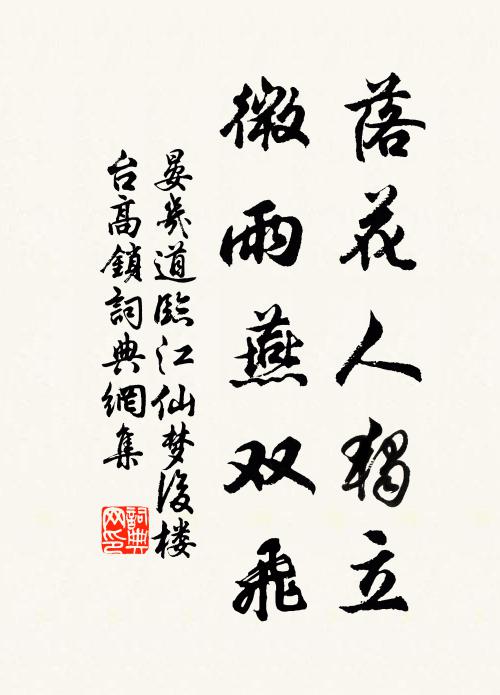 落花人獨立
微雨燕双飛
晏幾道臨江仙梦後楼
台高鎖詞典網集
詞典
网印